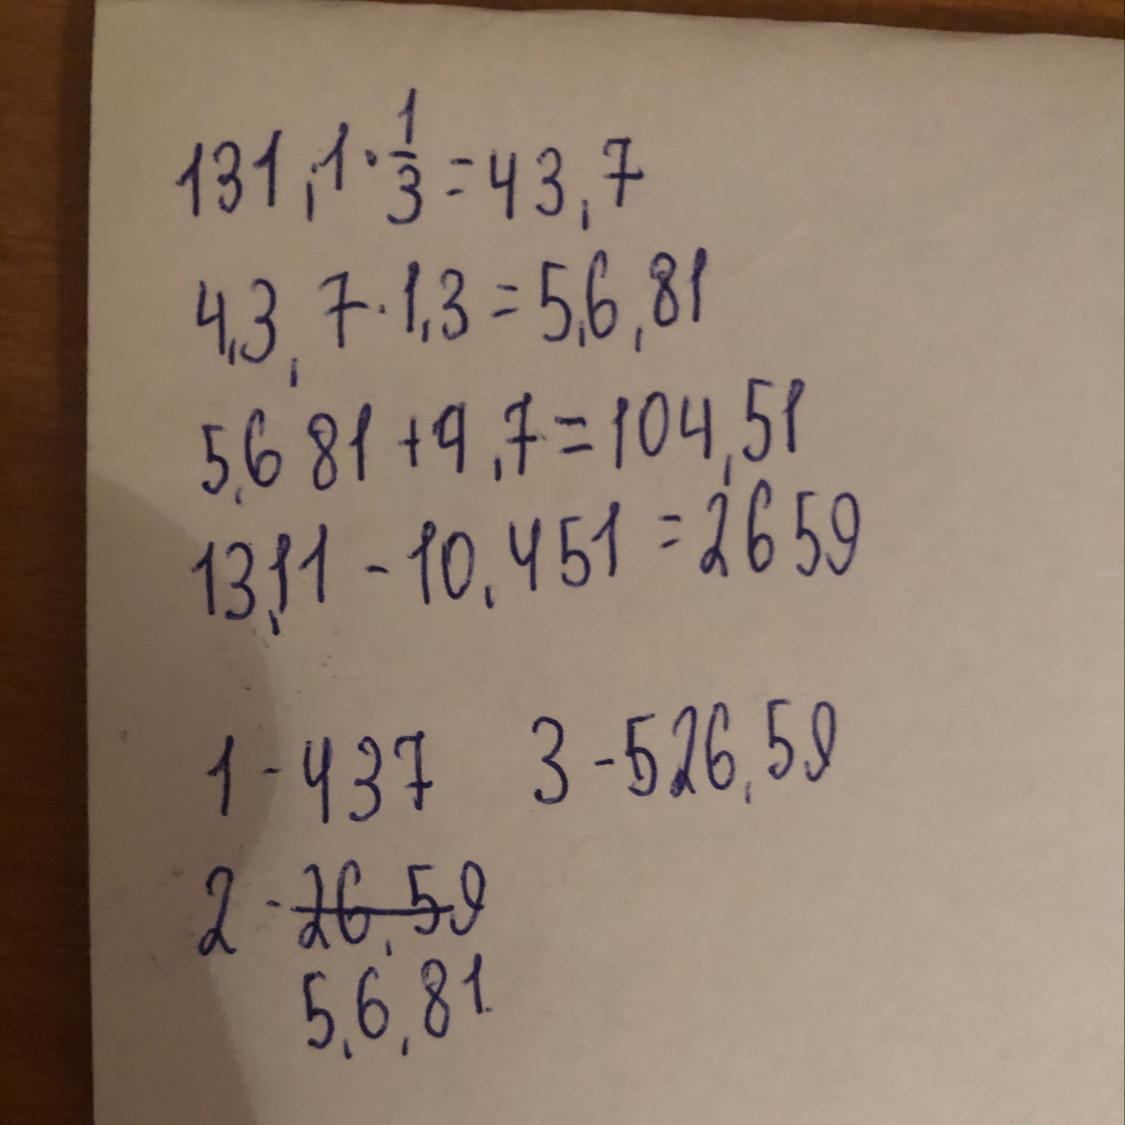 131,1·1/3=43,7
4,3,7·1,3=5,6,81
5,681+9,7=104,51
13,11-10,451=2659
1-437 3-526,59
2-26,59
5,6,81